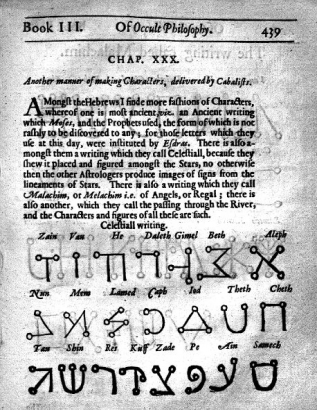 Book III. Of Occult Philosophy. 439
CHAP. XXX.
Another manner of making Characters, delivered by Cabalists.
AMongst the Hebrews I finde more fashions of Characters,
whereof one is most ancient, viz. an Ancient writing
which Moses, and the Prophets used, the form of which is not
rashly to be discovered to any; for those letters which they
use at this day, were instituted by Esdras. There is also a-
mongst them a writing which they call Celestiall, because they
shew it placed and figured amongst the Stars, no otherwise
then the other Astrologers produce images of signs from the
lineaments of Stars. There is also a writing which they call
Malachim, or Melachim i.e. of Angels, or Regal; there is
also another, which they call the passing through the River,
and the Characters and figures of all these are such.
Celestiall writing.
Zain Vau He Daleth Gimel Beth Aleph
Nun Mem Lamed Caph Jod Theth Cheth
Tau Shin Res Kuff Zade Pe Ain Samech